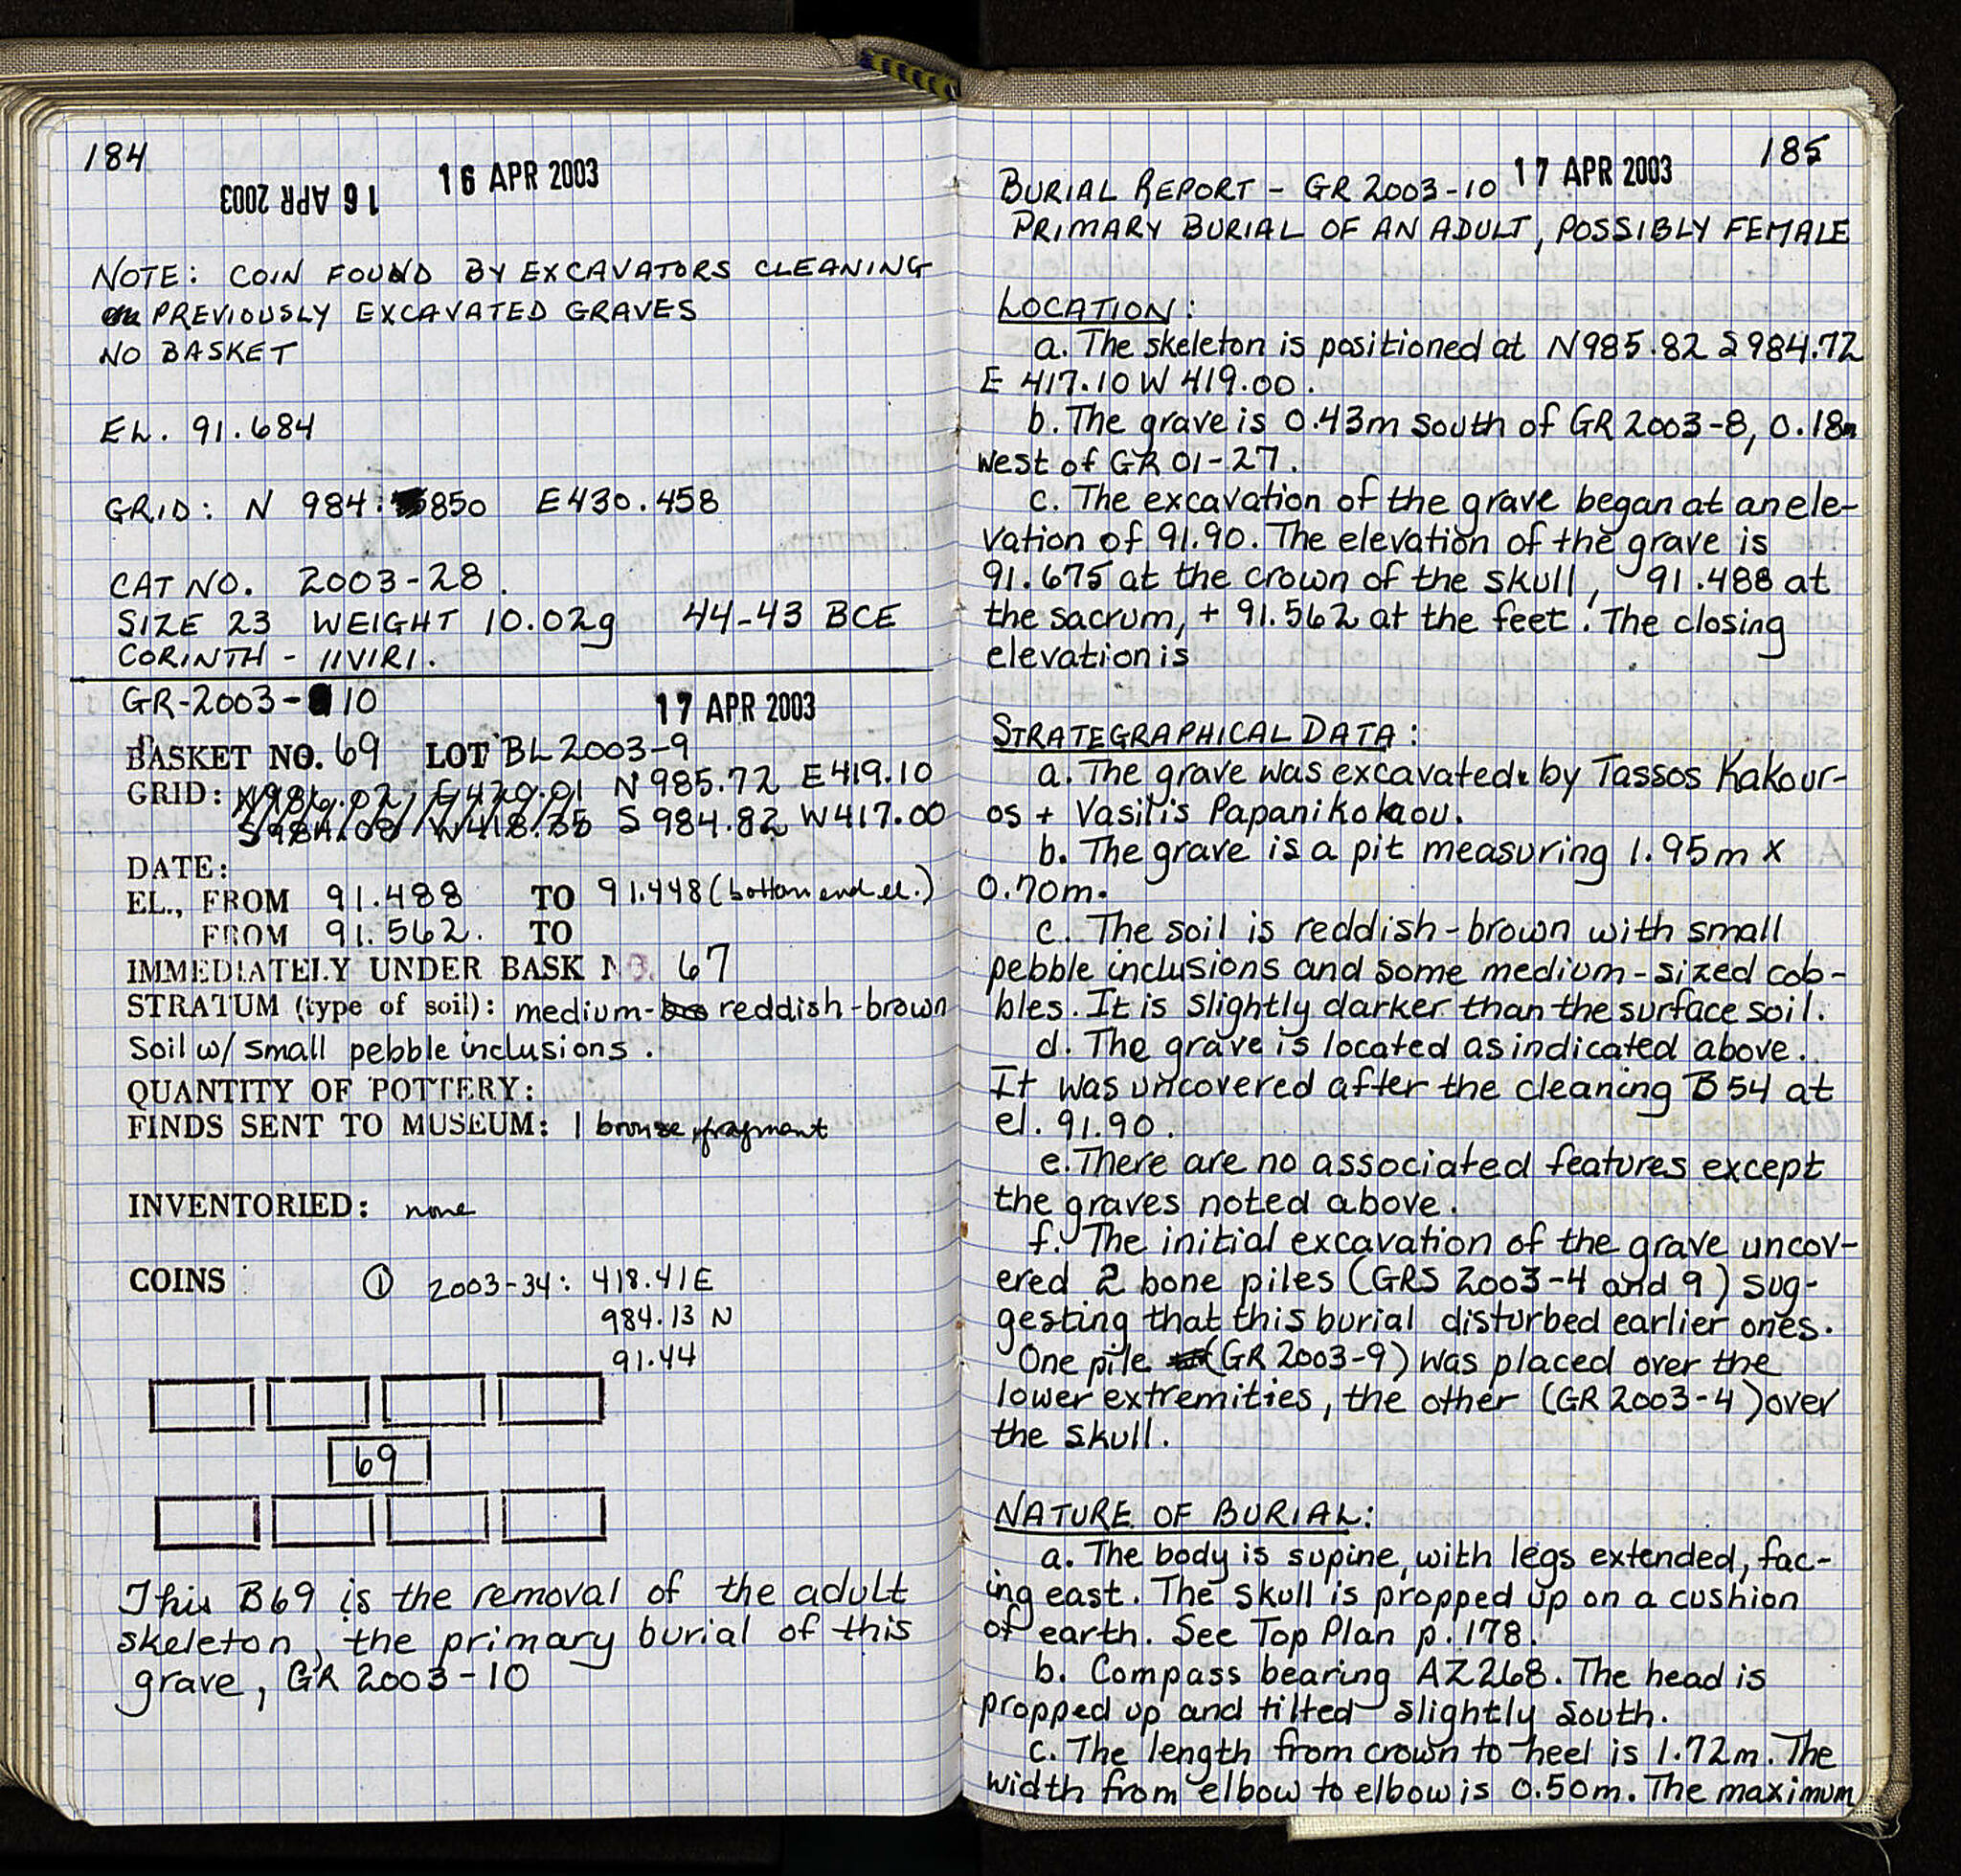 184
16 APR 2003
16 APR 2003
NOTE: COIN FOUND BY EXCAVATORS CLEANING
PREVIOUSLY EXCAVATED GRAVES
NO BASKET
EL. 91.684
GRID: N 984.850 E430.458
CAT NO. 2003-28.
SIZE 23 WEIGHT 10.02g 44-43 BCE
CORINTH - IIVIRI.
GR-2003-10
17 APR 2003
BASKET NO. 69 LOT BL 2003-9
GRID: N985.72 E419.10
S984.82 W417.00
DATE:
EL., FROM 91.488 TO 91.448 (bottom end el.)
FROM 91.562. TO
IMMEDIATELY UNDER BASK NO. 67
STRATUM (type of soil): medium- reddish-brown
soil w/ small pebble inclusions.
QUANTITY OF POTTERY:
FINDS SENT TO MUSEUM: 1 bronze fragment
INVENTORIED: none
COINS : ① 2003-34: 418.41E
984.13 N
91.44
69
This B69 is the removal of the adult
skeleton, the primary burial of this
grave, GR 2003-10
185
17 APR 2003
BURIAL REPORT - GR 2003-10
PRIMARY BURIAL OF AN ADULT, POSSIBLY FEMALE
LOCATION:
a. The skeleton is positioned at N985.82 S984.72
E 417.10 W 419.00.
b. The grave is 0.43m south of GR 2003-8, 0.18m
west of GR 01-27.
c. The excavation of the grave began at an ele-
vation of 91.90. The elevation of the grave is
91.675 at the crown of the skull, 91.488 at
the sacrum, + 91.562 at the feet. The closing
elevation is
STRATEGRAPHICAL DATA:
a. The grave was excavated by Tassos Kakour-
os + Vasilis Papanikolaou.
b. The grave is a pit measuring 1.95m x
0.70m.
c. The soil is reddish-brown with small
pebble inclusions and some medium-sized cob-
bles. It is slightly darker than the surface soil.
d. The grave is located as indicated above.
It was uncovered after the cleaning B54 at
el. 91.90.
e. There are no associated features except
the graves noted above.
f. The initial excavation of the grave uncov-
ered 2 bone piles (GRS 2003-4 and 9) sug-
gesting that this burial disturbed earlier ones.
One pile (GR 2003-9) was placed over the
lower extremities, the other (GR 2003-4) over
the skull.
NATURE OF BURIAL:
a. The body is supine, with legs extended, fac-
ing east. The skull is propped up on a cushion
of earth. See Top Plan p. 178.
b. Compass bearing AZ268. The head is
propped up and tilted slightly south.
c. The length from crown to heel is 1.72m. The
width from elbow to elbow is 0.50m. The maximum